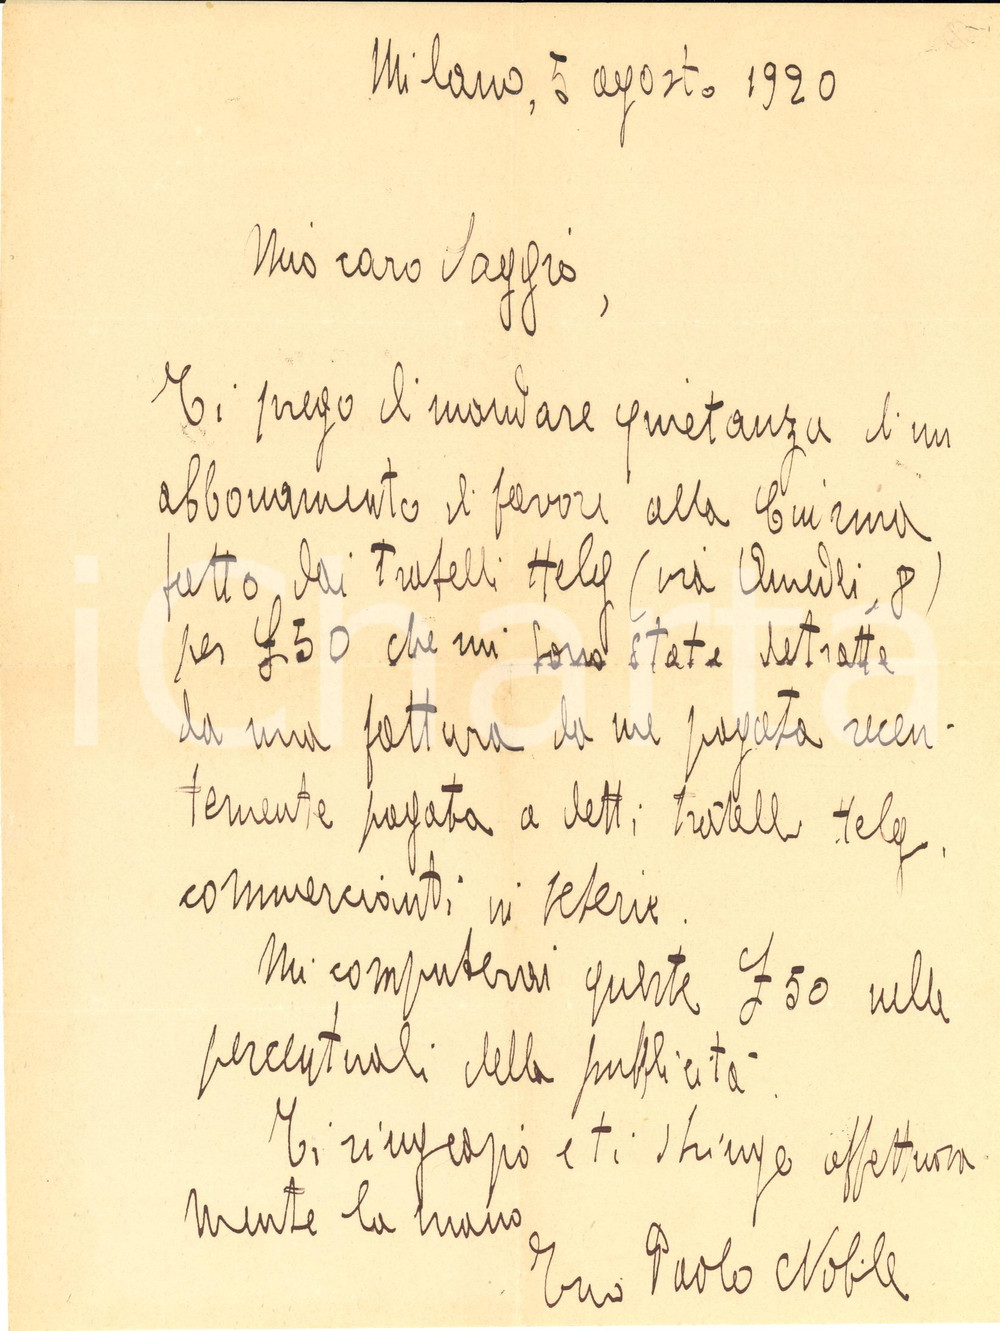 Milano, 5 agosto 1920
Mio caro Saggio,
Ti prego di mandare quietanza d'un
abbonamento di favore alla
fatto dai Fratelli Helg (via Amedei, 8)
per £ 50 che mi sono state detratte
da una fattura da me pagata recen-
temente pagata a detti fratelli Helg,
commercianti in seterie.
Mi computerai queste £ 50 nelle
percentuali della pubblicità.
Ti ringrazio e ti stringo affettuosa
mente la mano
Tuo Paolo Nobile
iCharta